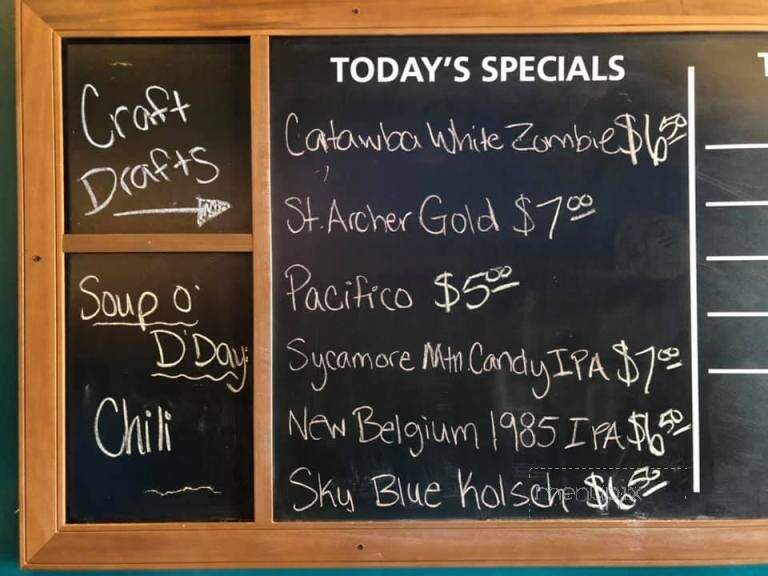 Craft
Drafts
Soup O'
D'Day:
Chili
TODAY'S SPECIALS
Catawba White Zombie $6.50
St. Archer Gold $7.00
Pacifico $5.00
Sycamore Mtn. Candy IPA $7.00
New Belgium 1985 IPA $6.50
Sky Blue Kolsch $6.50
T
menupix